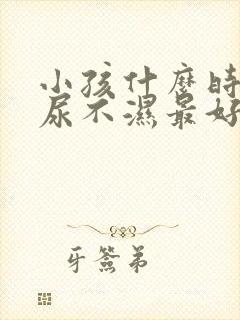 小孩什麼時
尿不濕最好
牙簽弟